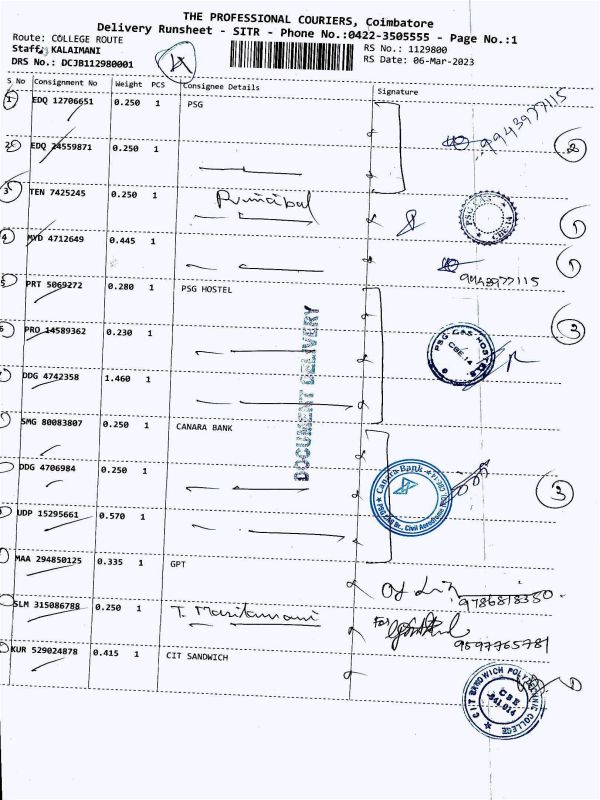 THE PROFESSIONAL COURIERS, Coimbatore
Delivery Runsheet - SITR - Phone No.:0422-3505555 - Page No.:1
Route: COLLEGE ROUTE
RS No.: 1129800
Staff: KALAIMANI
RS Date: 06-Mar-2023
DRS No.: DCJB112980001
S No Consignment No Weight PCS Consignee Details Signature
1 EDQ 12706651 0.250 1 PSG
9943977115
2 EDQ 24559871 0.250 1
2
3 TEN 7425245 0.250 1 Principal
1
4 MYD 4712649 0.445 1
1
9943977115
5 PRT 5069272 0.280 1 PSG HOSTEL
3
6 PRO 14589362 0.230 1
PSG CAS HOSTELS
CBE.14
DOCUMENT DELIVERY
DDG 4742358 1.460 1
SMG 80083807 0.250 1 CANARA BANK
DDG 4706984 0.250 1
Canara Bank
3
UDP 15295661 0.570 1
MAA 294850125 0.335 1 GPT
9786818350
SLM 315086788 0.250 1 T. Manikamani
For
9597765781
KUR 529024878 0.415 1 CIT SANDWICH
CIT SANDWICH POLYTECHNIC COLLEGE
CBE
641 014
1